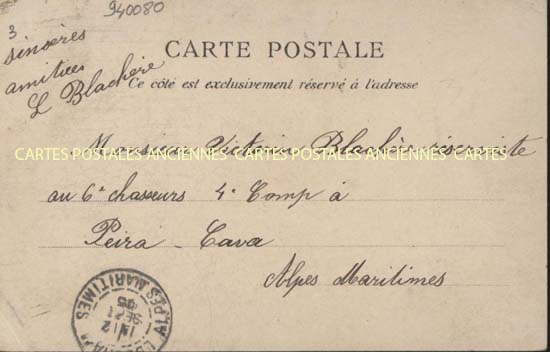 940080
3
sincères
amitiées
L Blachère
CARTE POSTALE
Ce côté est exclusivement réservé à l'adresse
Monsieur Victorin Blachère réserviste
CARTES POSTALES ANCIENNES CARTES POSTALES ANCIENNES CARTES
au 6e chasseurs 4e Comp à
Peïra-Cava
Alpes Maritimes
ALPES MARITIMES
12
SEPT
05